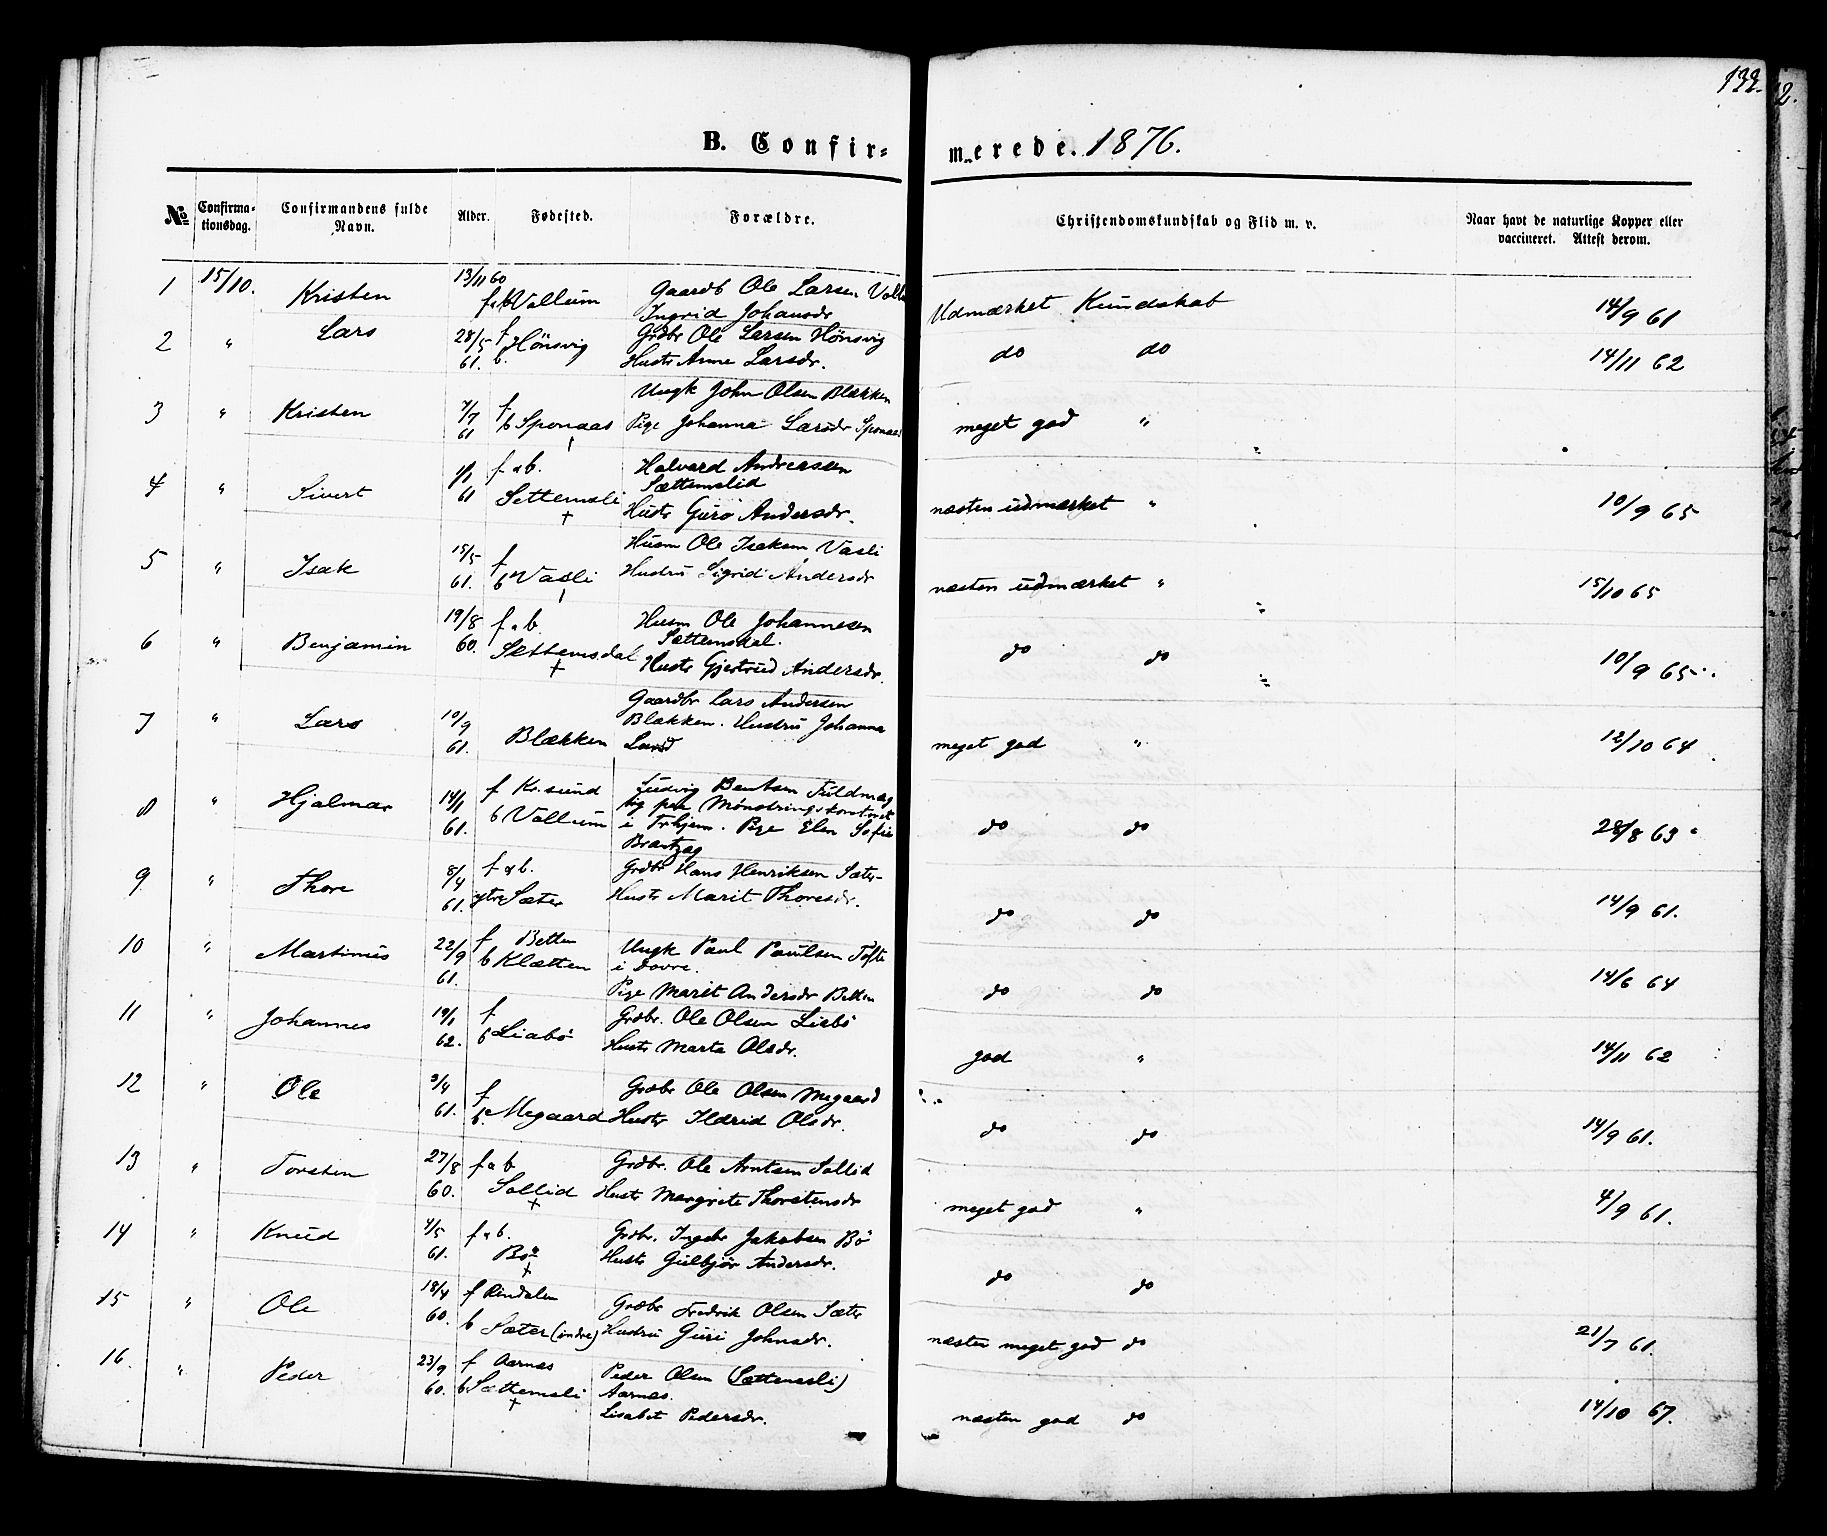 132.
2.
B. Confirmerede. 1876.
No Confirmationsdag. Confirmandens fulde Navn. Alder. Fødested. Forældre. Christendomskundskab og Flid m. v. Naar havt de naturlige Kopper eller vaccineret. Attest derom.
1 15/10. Kristen 13/11 60 f. b. Vollum Gaardb Ole Larsen
Ingrid Johansdr Udmærket Kundskab 14/9 61
2 " Lars 28/5 61. f b. Hönsvig Grdbr Ole Larsen Hönsvig
Hustr Anne Larsdr. do do 14/11 62
3 " Kristen 7/7 61 f b Sponaas Ungk John Olsen Blækken
Pige Johanna Larsdr Sponaas meget god "
4 " Sivert 1/1 61 f a b. Settemsli + Halvard Anderssen
Sættemslid
Hustr Guro Andersdr. næsten udmærket " 10/9 65
5 " Isak 15/5 61. f b Vasli Husm Ole Isaksen Vasli
Hustru Sigrid Andersdr næsten udmærket " 15/10 65
6 " Benjamin 19/8 60. f a b. Settemsdal + Husm Ole Johannesen
Sættemsdal.
Hustr Gjertrud Andersdr. do do 10/9 65
7 " Lars 10/9 61. Blækken Gaardbr Lars Andersen
Blækken. Hustru Johanna
Larsd meget god " 12/10 64
8 " Hjalmar 14/1 61. f Kr.sund b Vollum Ludvig Bentsen Fuldmæg
tig paa Mönstringskontoret
i Trhjem. Pige Elen Sofie
do do 28/8 63
9 " Thore 8/4 61. f a b. ytre Sæter Grdbr Hans Henriksen Sæter
Hustr Marit Thoresdr. do do 14/9 61.
10 " Martinus 22/9 61. f Betten b Klætten Ungk Paul Paulsen Tofte
i Dovre.
Pige Marit Andersdr Betten do do 14/6 64
11 " Johannes 19/1 62. f b Liabö Grdbr. Ole Olsen Liabö
Hustr Marta Olsdr. god " 14/11 62
12 " Ole 3/4 61. f b. Megaard Grdbr Ole Olsen Megaard
Hustr Ildrid Olsdr. do do 14/9 61.
13 " Torsten 27/8 60. f a b Sollid + Grdbr. Ole Arntsen Sollid
Hustr Margrete Thorstensdr meget god " 4/9 61.
14 " Knud 7/5 61. f a b. Bö + Grdbr. Ingebr Jakobsen Bö
Hustr Gulbjör Andersdr. do do
15 " Ole 18/4 60. f Rindalen b Sæter (indre) Grdbr Fredrik Olsen Sæter
Hustru Guri Johnsdr. næsten meget god do 21/7 61.
16. " Peder 23/9 60. f Aarnæs b Sættemsli + Peder Olsen (Sættemsli)
Aarnæs.
Lisabet Pedersdr. næsten god do 14/10 67.